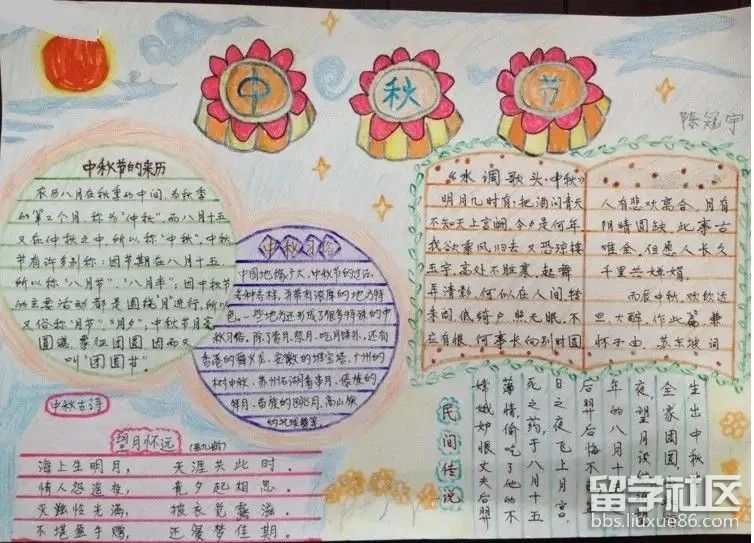 中秋节
陈冠宇
中秋节的来历
农历八月在秋季的中间,为秋季
的第2个月,称为"仲秋",而八月十五
又在仲秋之中,所以称"中秋"。中秋
节有许多别称:因节期在八月十五
所以称"八月节"、"八月半";因中秋节
的主要活动都是围绕"月"进行,所以
又俗称"月节"、"月夕",中秋节月亮
圆满,象征团圆,因而又
叫"团圆节"。
中秋习俗
中国地缘广大,中秋节的过法,
各种各样,并带有浓厚的地方特
色。一些地方还形成了很多特殊的中
秋习俗。除了赏月、祭月、吃月饼外,还有
香港的舞火龙、安徽的堆宝塔、广州的
树中秋、苏州石湖看串月、傣族的
拜月、苗族的跳月、高山族
《水调歌头·中秋》
明月几时有,把酒问青天
不知天上宫阙,今夕是何年
我欲乘风归去,又恐琼楼
玉宇,高处不胜寒,起舞
弄清影,何似在人间,转
朱阁,低绮户,照无眠,不
应有恨,何事长向别时圆
人有悲欢离合,月有
阴晴圆缺,此事古
难全,但愿人长久
千里共婵娟。
丙辰中秋,欢饮达
旦,大醉,作此篇,兼
怀子由,苏东坡词
中秋古诗
望月怀远
海上生明月,天涯共此时。
情人怨遥夜,竟夕起相思。
灭烛怜光满,披衣觉露滋。
不堪盈手赠,还寝梦佳期。
生出中秋
全家团圆,
夜,望月
年的八月十
后羿后悔不
日之夜飞上月宫。
死之药于八月十五
薄情,偷吃了他的不
嫦娥妒恨丈夫后羿
民间传说
留学社区
bbs.liuxue86.com